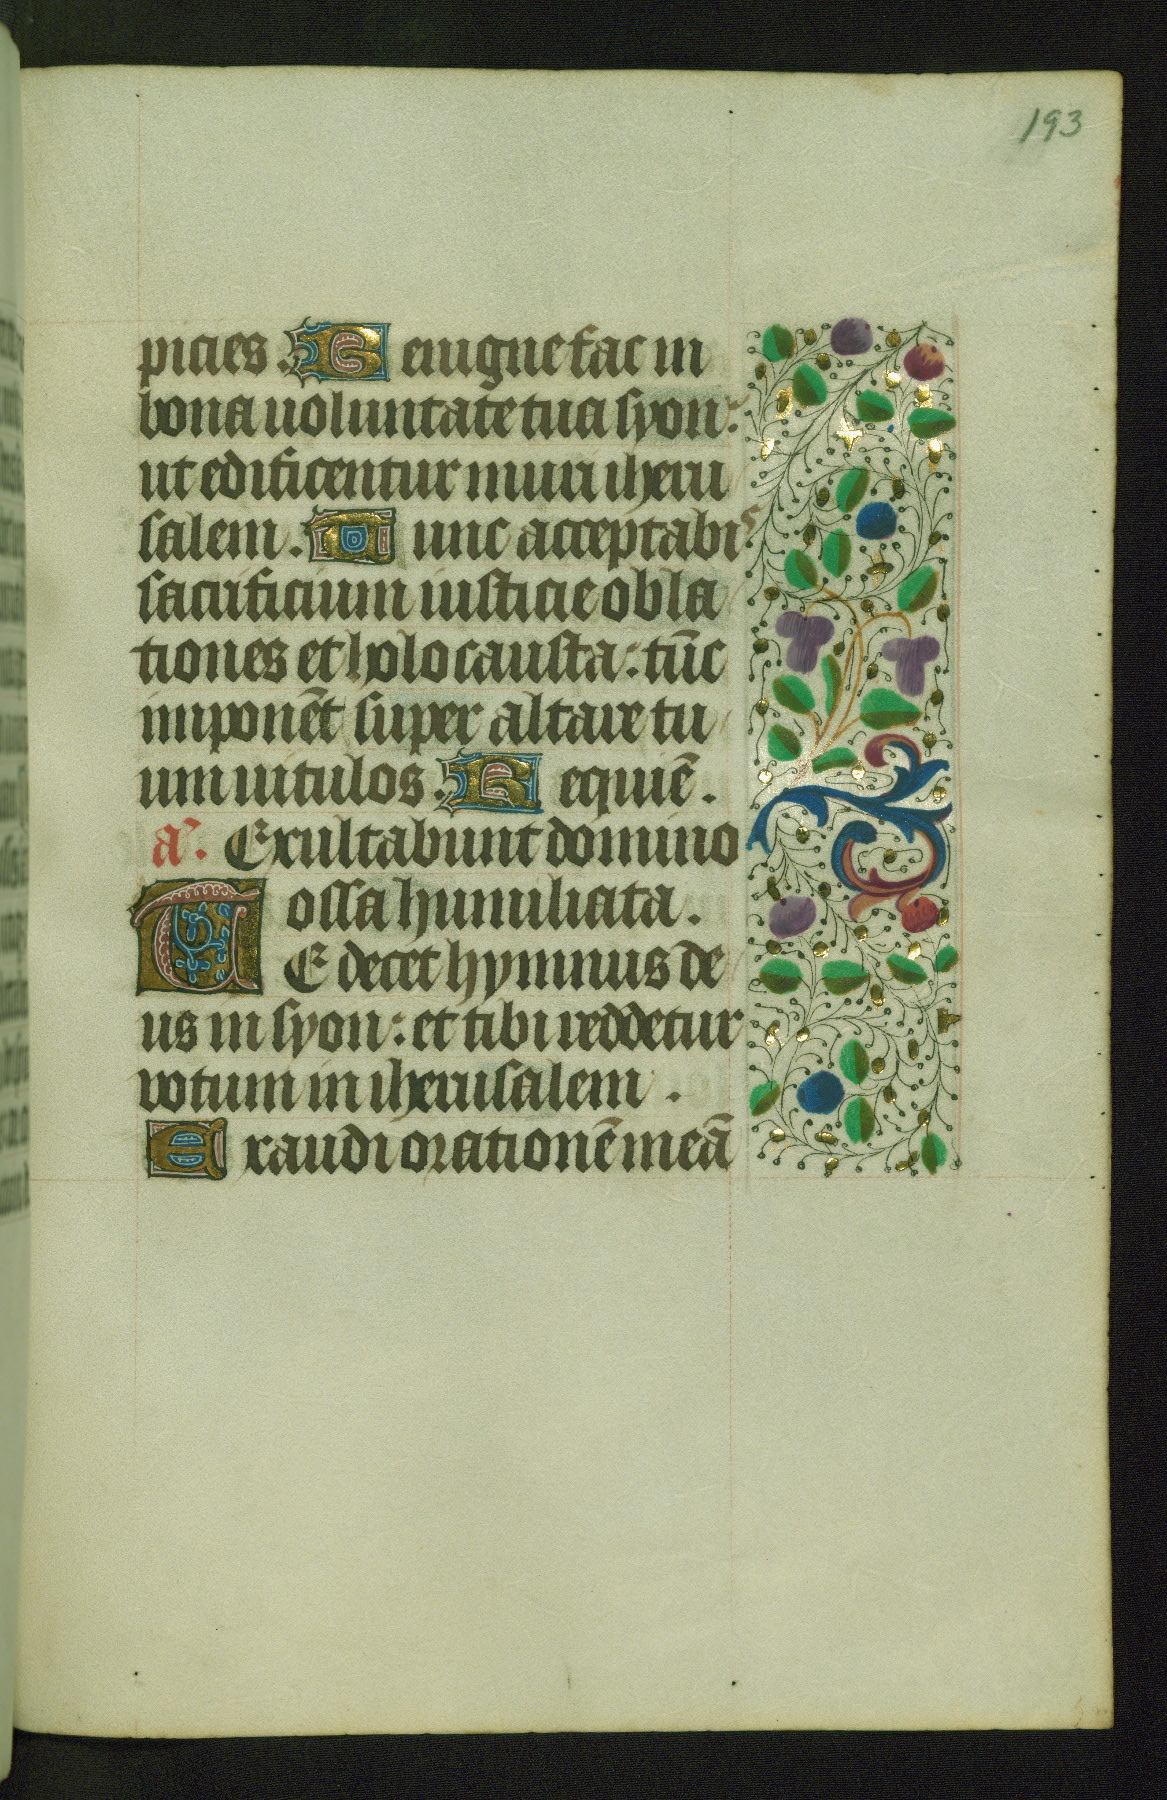 193
picies. Benigne fac in
bona uoluntate tua syon:
ut edificentur muri iheru
salem. Tunc acceptabis
sacrificium iusticie obla
tiones et holocausta: tūc
imponēt super altare tu
um uitulos. Requiē.
a͂. Exultabunt domino
ossa humiliata.
TE decet hymnus de
us in syon: et tibi reddetur
votum in iherusalem.
Exaudi orationē meā